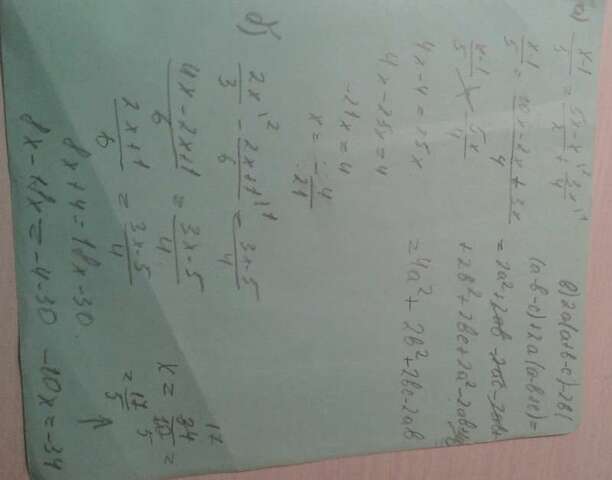 а) x-1/5 = 5x-x/2 + 3x/4
x-1/5 = 10x-2x+3x/4
x-1/5 = 5x/4
4x-4=25x
4x-25x=4
-21x=4
x=-4/21
б) 2x/3 - 2x+1/6 = 3x-5/4
4x-2x+1/6 = 3x-5/4
2x+1/6 = 3x-5/4
8x+4=18x-30
8x-18x=-4-30
-10x=-34
x=34/10=
=17/5
в) 2a(a+b-c)-2b(
(a-b-c)+2a(a-b+c)=
=2a²+2ab-2ac-2ab+
+2b²+2bc+2a²-2ab+2ac
=4a²+2b²+2bc-2ab